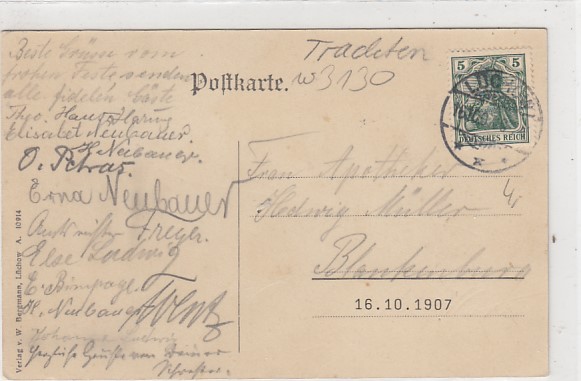 Beste Grüsse vom
frohen Feste senden
alle fidelen Gäste
Theo. Hans
Elisabet Neubauer.
H. Neubauer.
O. Petras.
Erna Neubauer
Freyer.
Else Ludwig
E.
H. Neubauer
Johanna Ludwig
Herzliche Grüsse von Deiner
Schwester.
Verlag v. W. Bergmann, Lüchow A. 10914
Trachten
w3130
Postkarte.
5 5
DEUTSCHES REICH
Frau Apotheker
Hedwig Müller
Blankenburg
16.10.1907